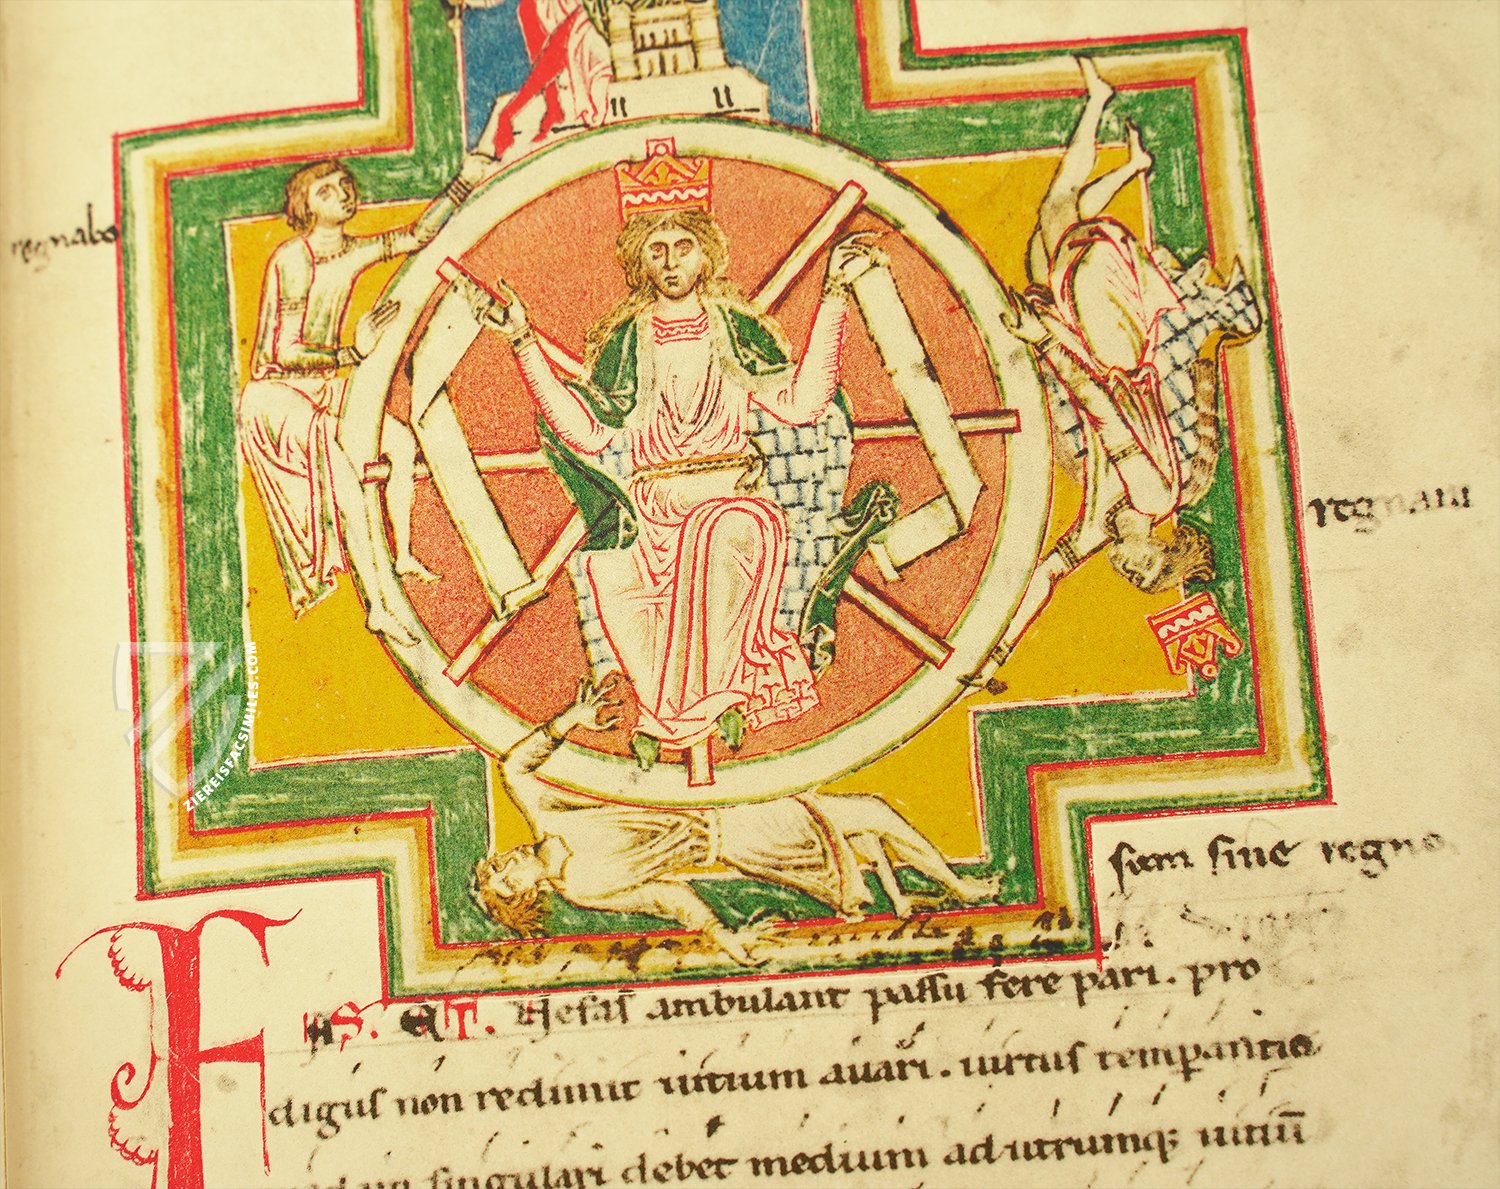 regnabo
regnaui
sum sine regno
Fas et Nefas ambulant passu fere pari. pro
digus non redimit uitium auari. uirtus temperantia
singulari debet medium ad utrumq; uitiū
ZIEREISFACSIMILES.COM